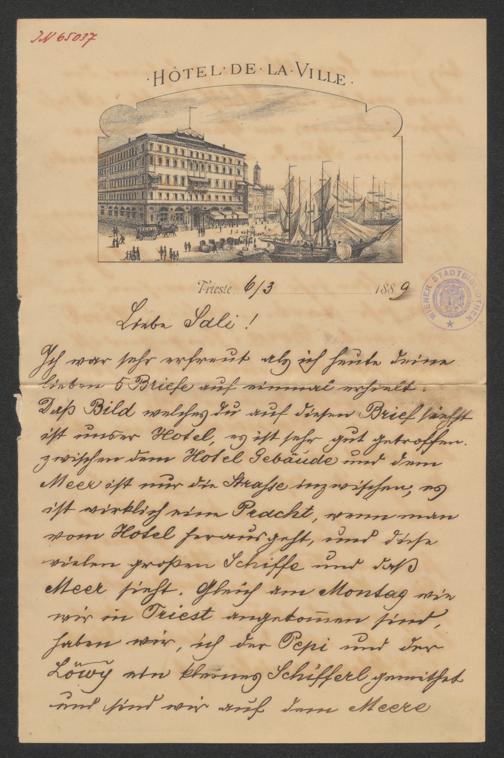 JN 65037
·HÔTEL·DE·LA·VILLE·
Trieste 6/3 1889
WIENER STADTBIBLIOTHEK
Liebe Sali!
Ich war sehr erfreut als ich heute deine
lieben 5 Briefe auf einmal erhielt.
Daß Bild welches du auf diesen Brief siehst
ist unser Hotel, es ist sehr gut getroffen.
zwischen dem Hotel Gebäude und dem
Meer ist nur die Straße inzwischen, es
ist wirklich eine Pracht, wenn man
vom Hotel herausgeht, und diese
vielen großen Schiffe und daß
Meer sieht. Gleich am Montag wie
wir in Triest angekom̅en sind,
haben wir, ich der Pepi und der
Löwy ein kleines Schifferl gemithet
und sind wir auf dem Meere